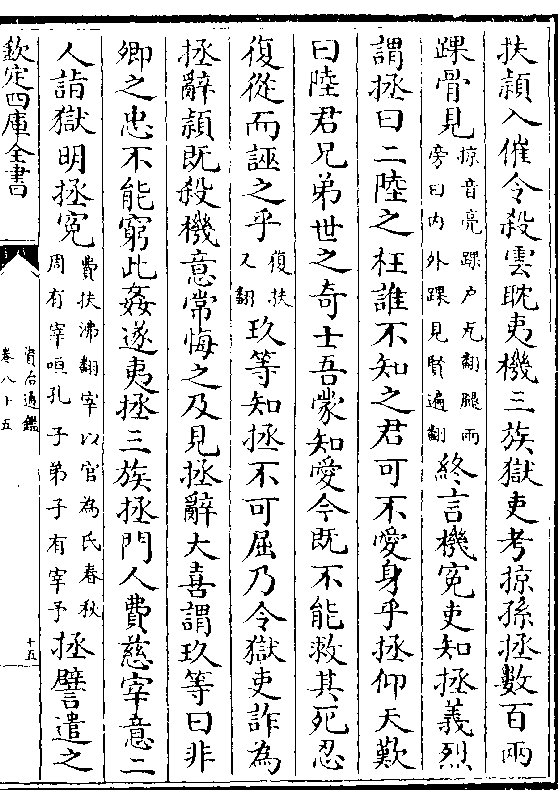 扶頴入催令殺雲耽夷機三族獄吏考掠孫拯數百兩
踝骨見掠音亮踝户瓦翻腿兩旁曰内外踝見賢遍翻終言機寃吏知拯義烈
謂拯曰二陸之枉誰不知之君可不愛身乎拯仰天歎
曰陸君兄弟世之奇士吾蒙知愛今既不能救其死忍
復從而誣之乎復扶又翻玖等知拯不可屈乃令獄吏詐為
拯辭頴既殺機意常悔之及見拯辭大喜謂玖等曰非
卿之忠不能窮此姦遂夷拯三族拯門人費慈宰意二
人詣獄明拯寃費扶沸翻宰以官為氏春秋周有宰咺孔子弟子有宰予拯譬遣之
欽定四庫全書
資治通鑑
卷八十五
十五